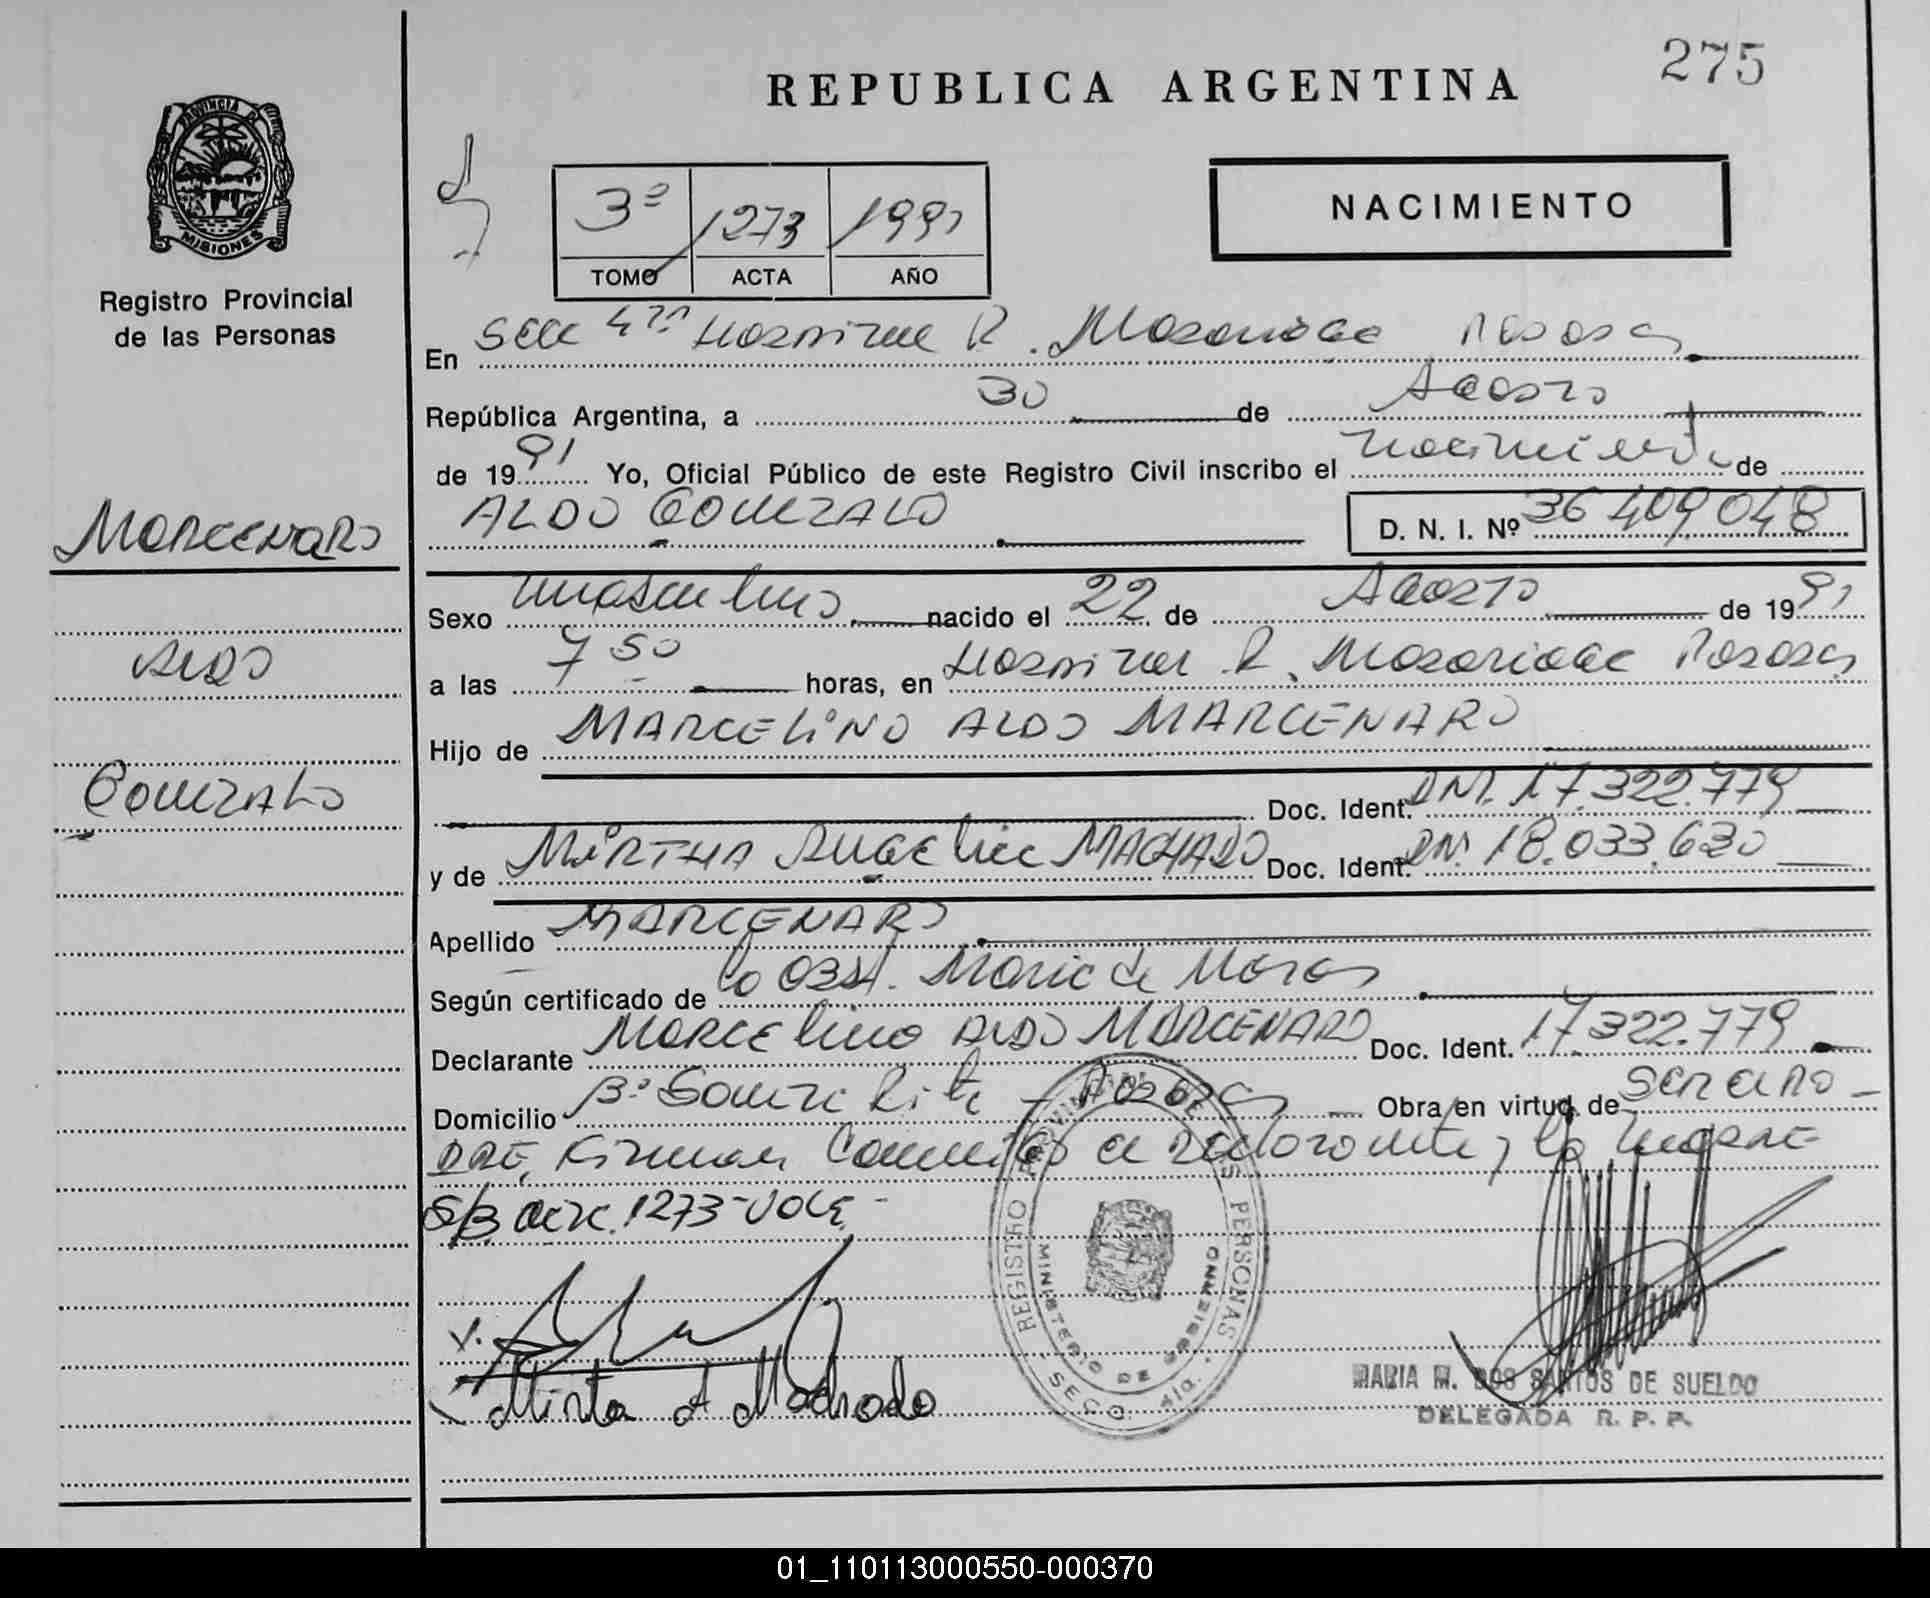 275
REPUBLICA ARGENTINA
PROVINCIA DE MISIONES
Registro Provincial
de las Personas
3º 1273 1991
TOMO ACTA AÑO
NACIMIENTO
En Secc 4ta Hospital R. Madariaga Posadas
República Argentina, a 30 de Agosto
de 1991 Yo, Oficial Público de este Registro Civil inscribo el nacimiento de
ALDO GONZALO D. N. I. Nº 36409048
MARCENARO
ALDO
GONZALO
Sexo masculino nacido el 22 de Agosto de 1991
a las 7 50 horas, en Hospital R. Madariaga Posadas
Hijo de MARCELINO ALDO MARCENARO
Doc. Ident. DNI. 17.322.779
y de MIRTHA Angelica MACHADO Doc. Ident. DNI. 18.033.630
Apellido MARCENARO
Según certificado de la Obst. Maria de Moras
Declarante MARCELINO ALDO MARCENARO Doc. Ident. 17.322.779
Domicilio Bº Santa Rita - Posadas Obra en virtud de ser el PA-
DRE, Firman Conmigo el declarante y la MADRE
S/B acta 1273 - VALE -
Mirta A Machado
REGISTRO PROVINCIAL DE LAS PERSONAS
MINISTERIO DE GOBIERNO
SECC. 4ta.
MARIA M. DOS SANTOS DE SUELDO
DELEGADA R. P. P.
01_110113000550-000370